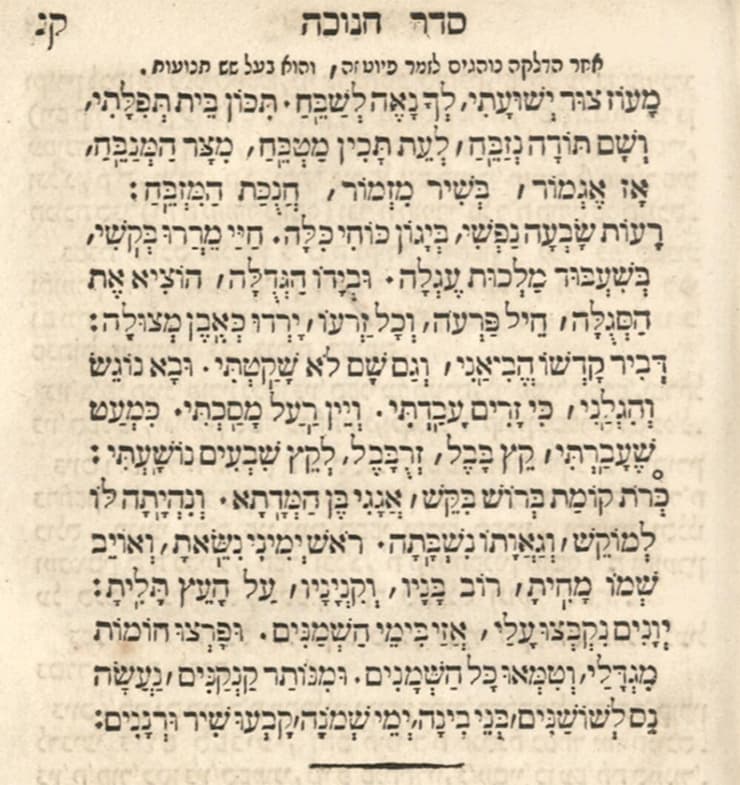 סדר חנוכה קנ
אחר הדלקה נוהגים לומר פיוט זה, והוא בעל שש תנועות.
מָעוֹז צוּר יְשׁוּעָתִי, לְךָ נָאֶה לְשַׁבֵּחַ. תִּכּוֹן בֵּית תְּפִלָּתִי,
וְשָׁם תּוֹדָה נְזַבֵּחַ, לְעֵת תָּכִין מַטְבֵּחַ, מִצָּר הַמְנַבֵּחַ,
אָז אֶגְמוֹר, בְּשִׁיר מִזְמוֹר, חֲנֻכַּת הַמִּזְבֵּחַ:
רָעוֹת שָׂבְעָה נַפְשִׁי, בְּיָגוֹן כּוֹחִי כִּלָּה. חַיַּי מֵרְרוּ בְּקֹשִׁי,
בְּשִׁעְבּוּד מַלְכוּת עֶגְלָה. וּבְיָדוֹ הַגְּדֻלָּה, הוֹצִיא אֶת
הַסְּגֻלָּה, חֵיל פַּרְעֹה, וְכָל זַרְעוֹ, יָרְדוּ כְּאֶבֶן מְצוּלָה:
דְּבִיר קָדְשׁוֹ הֱבִיאַנִי, וְגַם שָׁם לֹא שָׁקַטְתִּי. וּבָא נוֹגֵשׂ
וְהִגְלַנִי, כִּי זָרִים עָבַדְתִּי. וְיֵין רַעַל מָסַכְתִּי. כִּמְעַט
שֶׁעָבַרְתִּי, קֵץ בָּבֶל, זְרֻבָּבֶל, לְקֵץ שִׁבְעִים נוֹשָׁעְתִּי:
כְּרֹת קוֹמַת בְּרוֹשׁ בִּקֵּשׁ, אֲגָגִי בֶּן הַמְּדָתָא. וְנִהְיְתָה לּוֹ
לְמוֹקֵשׁ, וְגַאֲוָתוֹ נִשְׁבָּתָה. רֹאשׁ יְמִינִי נִשֵּׂאתָ, וְאוֹיֵב
שְׁמוֹ מָחִיתָ, רוֹב בָּנָיו, וְקִנְיָנָיו, עַל הָעֵץ תָּלִיתָ:
יְוָנִים נִקְבְּצוּ עָלַי, אֲזַי בִּימֵי חַשְׁמַנִּים. וּפָרְצוּ חוֹמוֹת
מִגְדָּלַי, וְטִמְּאוּ כָּל הַשְּׁמָנִים. וּמִנּוֹתַר קַנְקַנִּים, נַעֲשָׂה
נֵס לְשׁוֹשַׁנִּים, בְּנֵי בִינָה, יְמֵי שְׁמֹנָה, קָבְעוּ שִׁיר וּרְנָנִים: